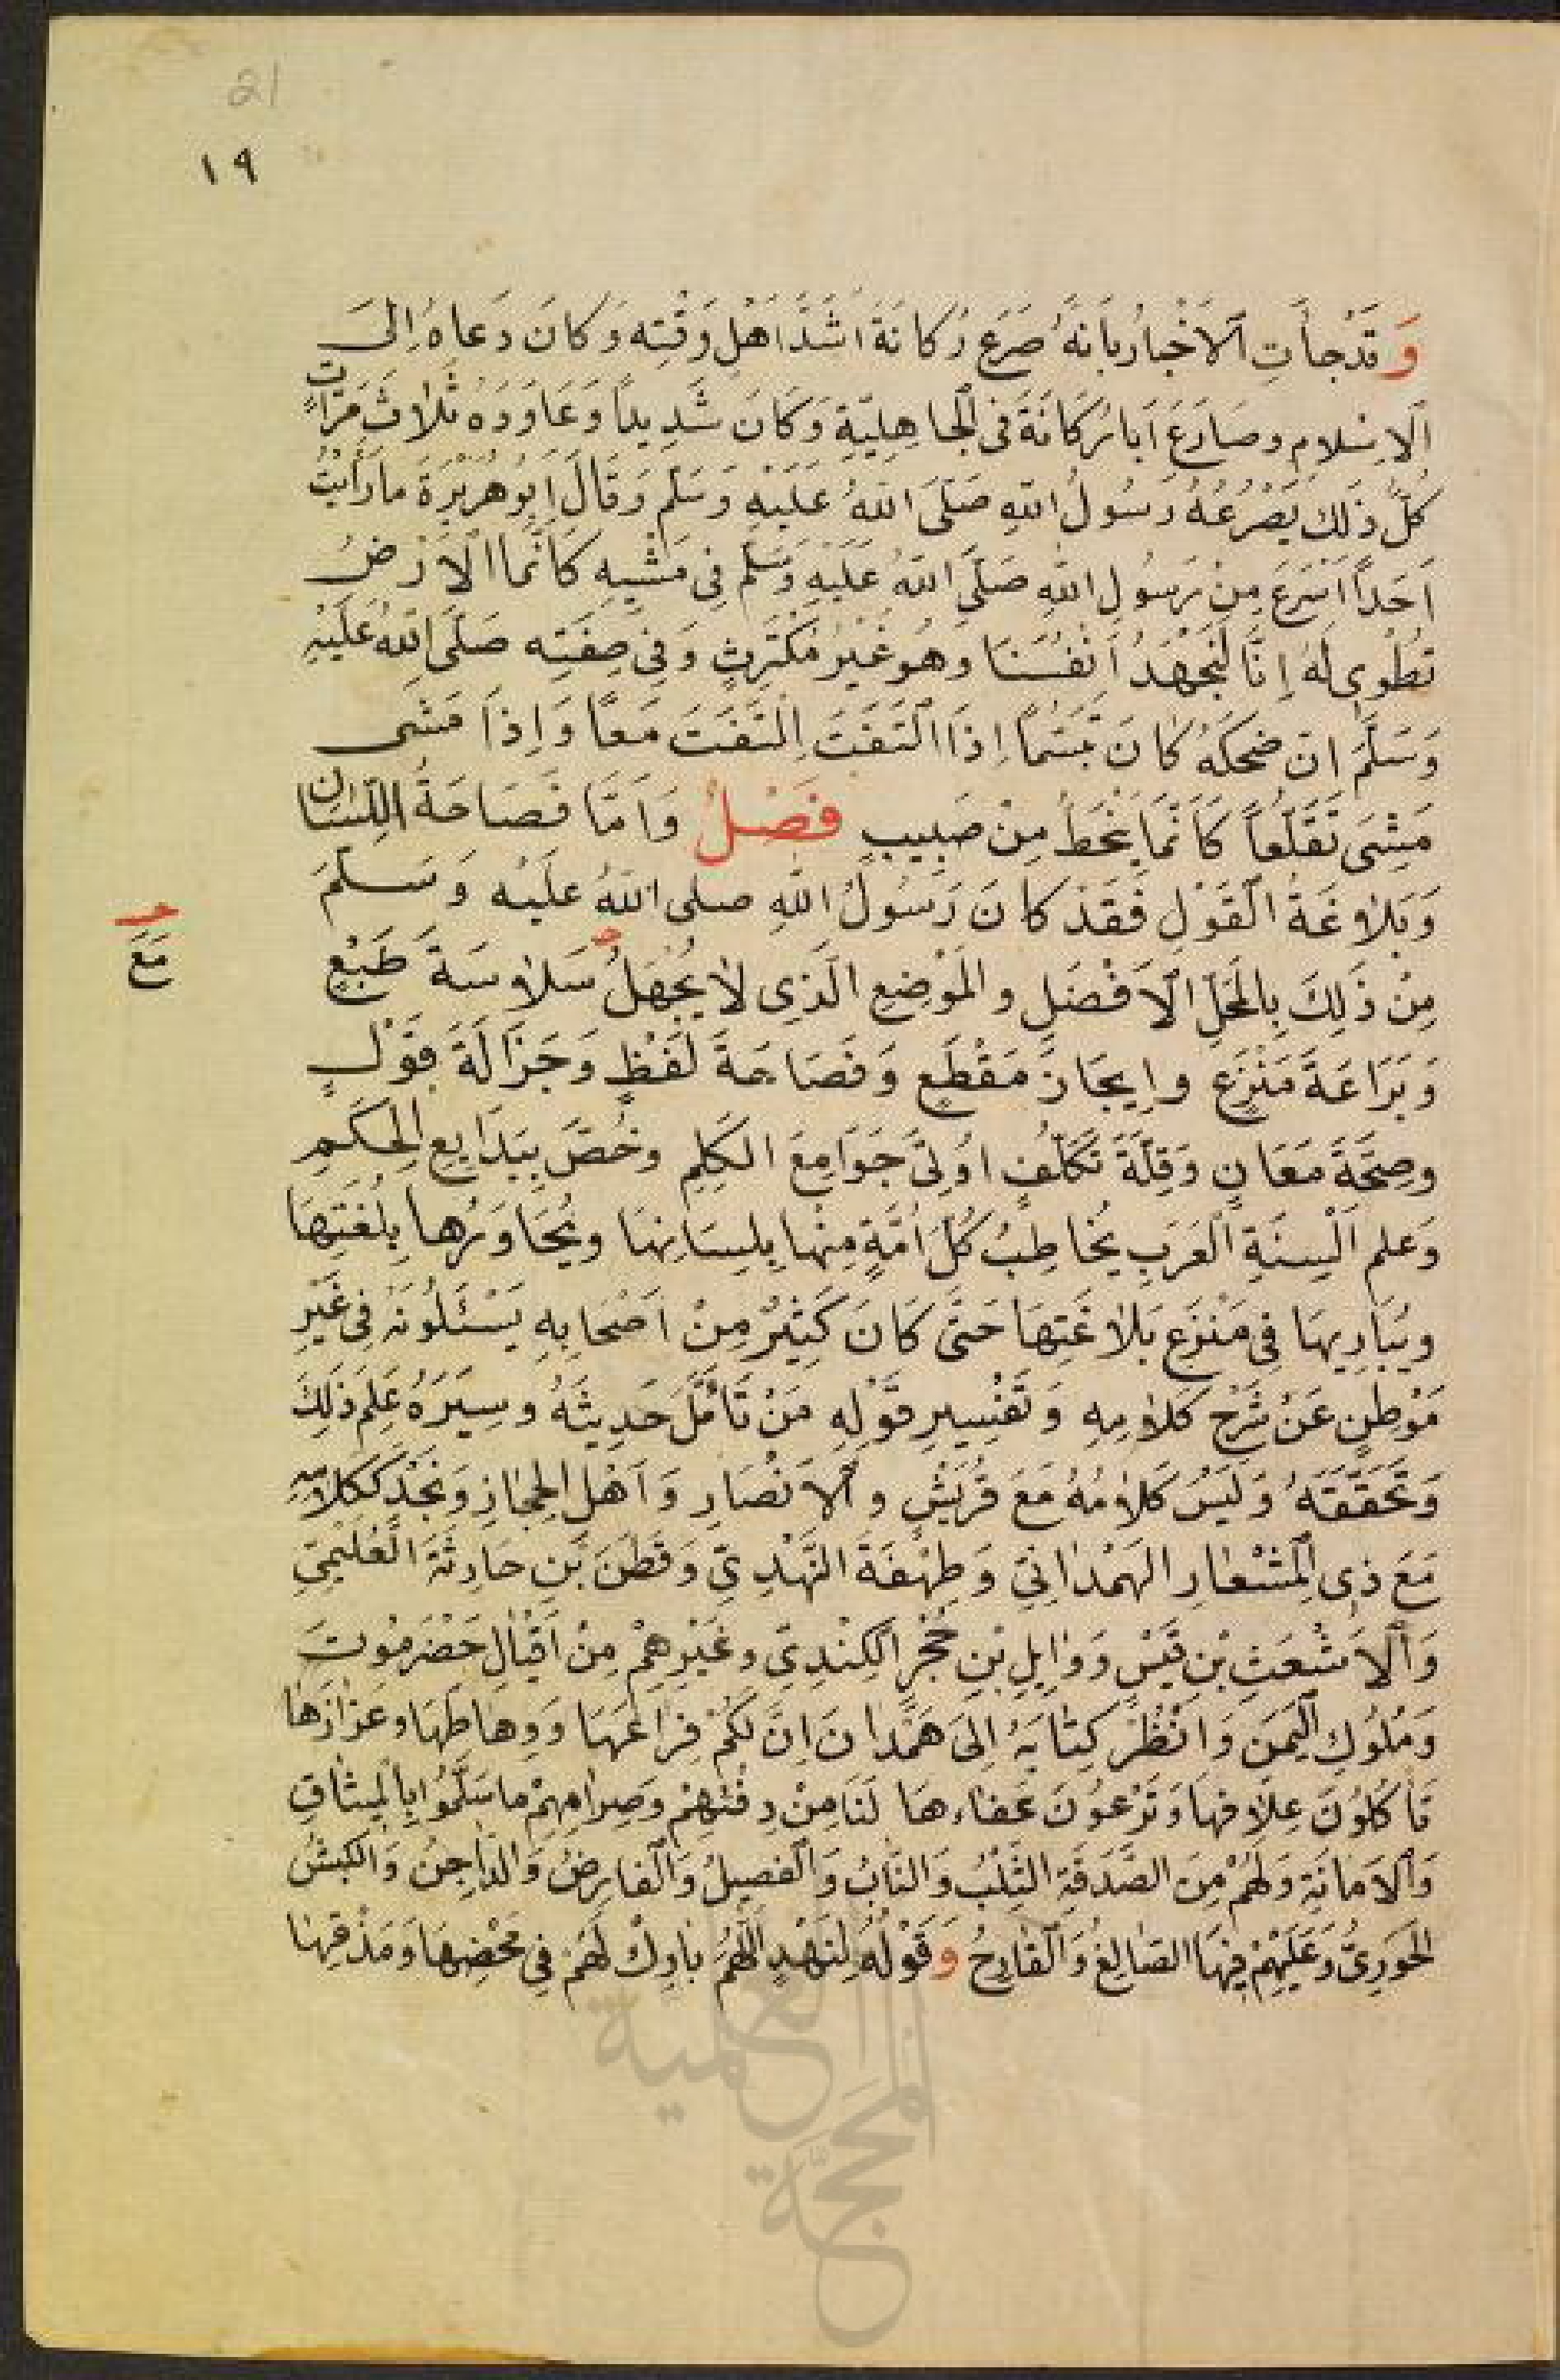 21
١٩
وَقَدْ جأتِ الاَخْبارُ بِاَنَّهُ صَرَعَ رُكانَةَ اَشَدَّ اَهْلِ وَقْتِه وَكانَ دَعاهُ اِلَى
الاِسْلامِ وصَارَعَ اَبَا رُكَانَةَ فى الجاهِلِيّةِ وَكَانَ شَدِيداً وَعَاوَدَهُ ثَلاثَ مَرَّاتٍ
كُلُّ ذَلِكَ يَصْرُعُهُ رَسُولُ اللهِ صَلَّى اللهُ عَلَيْهِ وَسَلَّم وَقَالَ اَبُو هُرَيْرَةَ ما رَأَيْتُ
اَحَداً اَسْرَعَ مِنْ رَسُولِ اللهِ صَلَّى اللهُ عَلَيْهِ وَسَلَّم فِى مَشْيِهِ كَاَنَّما الاَرْضُ
تُطْوى لَهُ اِنَّا لَنَجْهَدُ اَنفُسَنَا وَهُوَ غَيْرُ مُكْتَرِثٍ وَفِى صِفَتِه صَلَّى اللهُ عَلَيْهِ
وَسَلَّمَ ان ضحكَهُ كانَ تَبَسُّماً اِذَا الْتَفَتَ اِلْتَفَتَ مَعًا وَاِذَا مَشَى
مَشَى تَقَلُّعاً كَاَنَّمَا يَنْحَطُّ مِنْ صَبِيبٍ فَصْلٌ وَاَمَّا فَصَاحَةُ اللِّسَانِ
وَبَلاغَةُ الْقَوْلِ فَقَدْ كانَ رَسُولُ اللهِ صلى اللهُ علَيْه وَسَلَّمَ
مِنْ ذَلِكَ بِالمَحَلِّ الاَفْضَلِ والمَوْضِعِ الَّذِى لا يُجْهَلُ سَلاسَةَ طَبْعٍ
مَعَ
وَبَرَاعَةَ مَنْزَعٍ وايِجَازَ مَقْطَعٍ وَفَصَاحَةَ لَفْظٍ وَجَزَالَةَ قَوْلٍ
وصِحَّةَ مَعَانٍ وَقِلَّةَ تَكَلُّفٍ اوُتِىَ جَوَامِعَ الكَلِمِ وخُصَّ بِبَدَايِعِ الحِكَمِ
وَعلم اَلْسِنَةِ الْعَرَبِ يُخاطِبُ كُلَّ اُمَّةٍ مِنْها بِلِسَانِهَا ويُحَاوِرُها بِلُغَتِهَا
ويُبَارِيهَا فِى مَنْزَعِ بَلاغَتِهَا حَتَّى كَانَ كَثِيْرٌ مِنْ اَصْحَابِهِ يَسْئَلُونَهُ فِى غَيْرِ
مَوْطِنٍ عَنْ شَرْحِ كَلامِهِ وَتَفْسِيرِ قَوْلِهِ مَنْ تَأمَّلَ حَدِيثَهُ وسِيَرَهُ عَلِمَ ذَلِكَ
وَتَحَقَّقَهُ وَلَيْسَ كَلامُهُ مَعَ قُرَيْشٍ والاَنْصَارِ وَاَهْلِ الحِجَازِ وَنَجْدٍ كَكَلامِهِ
مَعَ ذِى المِشْعَارِ الهَمْدَانِىّ وَطِهْفَةَ النَّهْدِىِّ وَقَطَنَ بْنِ حَارِثَةَ العُلَيْمِىِّ
وَالاَشْعَثِ بْنِ قَيْسٍ وَوَايِلِ بْنِ حُجْرٍ الكِنْدِىّ وغَيْرِهِمْ مِنْ اَقْيَالِ حَضْرَمُوتَ
وَمُلُوكِ الْيَمَنِ وَانْظُرْ كِتَابَهُ اِلَى هَمْدَانَ اِنَّ لَكُمْ فِرَاعَهَا وَوِهَاطَهَا وعَزَازَهَا
تَأكُلُونَ عِلافَهَا وَتَرْعَوْنَ عَفَاءهَا لَنَا مِنْ دِفْئِهِمْ وَصِرَامِهِمْ ما سَلَّمُوا بِالمِيثَاقِ
وَالاَمَانَةِ وَلَهُمْ مِنَ الصَّدَقَةِ الثِّلْبُ وَالنَّابُ وَالْفَصِيلُ وَالْفَارِضُ وَالدَّاجِنُ وَالكَبْشُ
الحَوَرِىُّ وَعَلَيْهِمْ فِيهَا الصَّالِغُ وَالْقَارِحُ وَقَوْلُهُ لِنَهْدٍ اللَّهُمَّ بارِكْ لَهُمْ فِى مَحْضِهَا وَمَذْقِهَا
المحجّة
العلمية